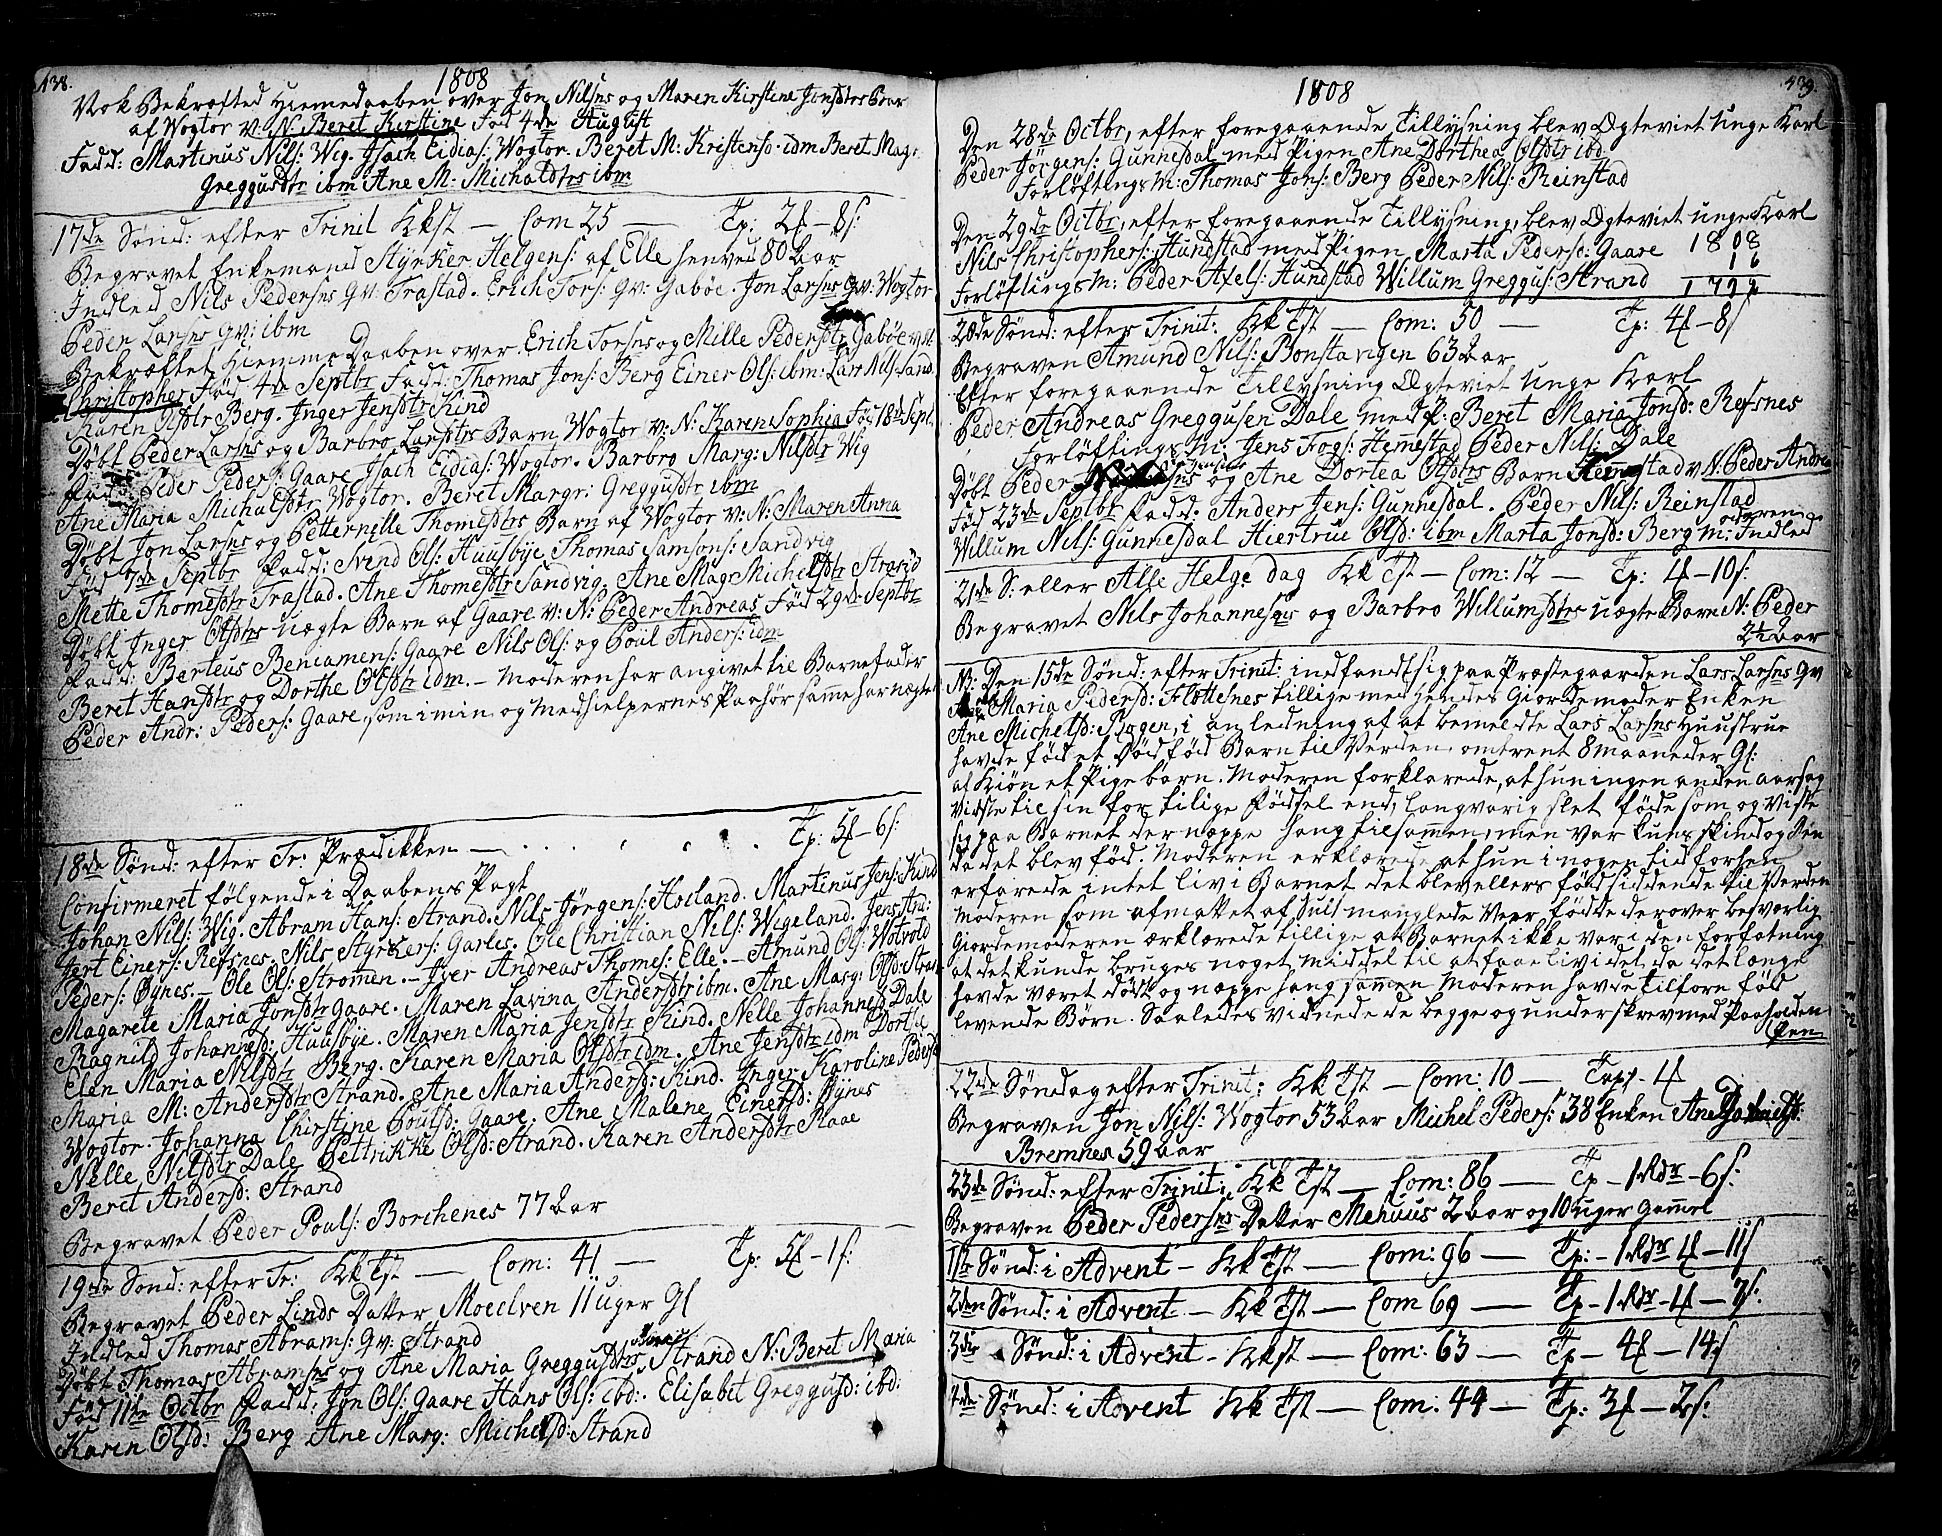 438.
1808
Nok Bekræfted Hiemedaaben over Jon Nilsns og Maren Kirstine Jonsdtrs Barn
af Wogtor v: N: Beret Kirstine Fød 4de August
Fadd: Martinus Nils: Wig. Isach Eidias: Wogtor. Beret M: Kristensd. ibm Beret Mag:
Greggusdtr ibm: Ane M: Michalsdtr ibm
17de Sønd: efter Trinit KkSt — Com 25 — Tp: 2f – 8s:
Begravet Enkemand Styrker Helgens: af Elle henved 80 Aar
Indled Nils Pedersns Qv: Trastad. Erich Tors: Qv: Gabøe. Jon Larsns Qv: Wogtor
Peder Larsns Qv: ibm
Bekræftet Hiemme Daaben over Erich Torsns og Mille Pedersdtr Gabøe v: N:
Christopher Fød 4de Septbr Fadd: Thomas Jons: Berg Einer Ols: ibm: Lars Nils: Sand.
Karen Olsdtr Berg. Inger Jensdtr Kind
Døbt Peder Larsns og Barbro Larsdtrs Barn Wogtor v: N: Karen Sophia Fød 18de Sept.
Fadd: Peder Peders: Gaare Isach Eidias: Wogtor. Barbro Marg: Nilsdtr Wig
Ane Maria Michalsdtr Wogtor. Beret Margr: Greggusdtr ibm
Døbt Jon Larsns og Petternelle Thomesdtrs Barn af Wogtor v: N: Maren Anna
Fød 7de Septbr Fadd: Svend Ols: Huusbye Thomas Samsons: Sandvig
Mette Thomesdtr Trastad. Ane Thomesdtr Sandvig. Ane Mag: Michelsdtr Strand
Døbt Inger Olsdtrs uægte Barn af Gaare v: N: Peder Andreas Fød 29de Septbr
Fadd: Berteus Bencamens: Gaare Nils Ols: og Poul Anders: idm
Beret Hansdtr og Dorthe Olsdtr idm. – Moderen har angivet til Barnefader
Peder Andr: Peders: Gaare, som i min og Medhielpernes Paahør samme har nægtet
18de Sønd: efter Tr: Prædikken — Tp: 5f – 6s:
Confirmeret følgende i Daabens Pagt
Johan Nils: Wig. Abram Hans: Strand. Nils Jørgens: Hoeland. Martinus Jens: Kind
Jert Einers: Refsnes. Nils Styrkers: Garles. Ole Christian Nils: Wigeland. Jens An:
Peders: Øynes. – Ole Ols: Strømen. – Iver Andreas Thomes: Elle. – Amund Ols: Wotvold
Magarete Maria Jonsdtr Gaare. Maren Lavina Andersdtr ibm. Ane Marg: Olsd: Strand
Ragnild Johannesd: Huusbye. Maren Maria Jensdtr Kind. Nelle Johannesd Dale
Elen Maria Nilsdtr Berg. Karen Maria Olsdtr idm. Ane Jensdtr idm Dorthe
Maria M: Andersdtr Strand. Ane Maria Andersd: Kind. Inger Karoline Pedersd
Wogtor. Johanna Chirstine Poulsd: Gaare. Ane Malene Einersd: Øynes
Nelle Nilsdtr Dale Pettrikke Olsd: Strand. Karen Andersdtr Raae
Beret Andersd: Strand
Begravet Peder Pouls: Borchenes 77 Aar
19de Sønd: efter Tr: Kk Tst — Com: 41 — Tp: 5f – 1s:
Begravet Peder Linds Datter Moeelven 11 uger Gl
Indled Thomas Abrams: Qv: Strand
Døbt Thomas Abramsns og Ane Maria Greggusdtrs Barn Strand N: Beret Maria
Fød 11te Octbr Fadd: Jon Ols: Gaare Hans Ols: ibd: Elisabet Greggusd: ibd:
Karen Olsd: Berg Ane Marg: Michelsd: Strand
439.
1808
Den 28de Octbr, efter foregaaende Tillysning blev Ægteviet Unge Karl
Peder Jørgens: Gunnesdal med Pigen Ane Dorthea Olsdtr ibd:
Forløftings M: Thomas Jons: Berg Peder Nils: Reinstad
Den 29de Octbr, efter foregaaende Tillysning, blev Ægteviet unge Karl
Nils Christophers: Hundstad med Pigen Marta Pedersd: Gaare 1808
16
Forløftings M: Peder Axels: Hundstad Willum Greggus: Strand 1792
20de Sønd: efter Trinit: Kk Tst — Com: 50 — Tp: 4f – 8s
Begraven Amund Nils: Bonstangen 63 Aar
Efter foregaaende Tillysning Ægteviet Unge Karl
Peder Andreas Greggusen Dale med P: Beret Maria Jonsd: Refsnes
Forløftings M: Jens Fogs: Hemestad Peder Nils: Dale
Døbt Peder og Ane Dortea Olsdtrs Barn Hemstad v N: Peder Andrea
Fød 23de Septbr Fadd: Anders Jens: Gunnesdal. Peder Nils: Reinstad
Willum Nils: Gunnesdal Hiertrue Olsd: ibm Marta Jonsd: Berg M: Indled
21de S: eller Alle Helge dag Kk Tst — Com: 12 — Tp: 4f – 10s:
Begravet Nils Johannesns og Barbro Willumsdtrs uægte Barn N: Peder
2½ Aar
NB: Den 15de Sønd: efter Trinit: indfandt sig paa Præstegaarden Lars Larsns Qv
Maria Pedersd: Flottesnes tillige med hendes Giordemoder Enken
Ane Michelsd: Plogen, i anledning af at bemeldte Lars Larsns Huustrue
havde fød et Dødfød Barn til Verden omtrent 8 maaneder Gl:
af Kiøn et Pigebarn. Moderen forklarede, at hun ingen anden aarsag
vidste til sin for tilige Fødsel end, langvarig slet føde som og viste
sig paa Barnet der neppe hang tilsammen, men var kuns skind og Been
da det blev fød. Moderen erklærede at hun i nogen tid forhen
erfarede intet liv i Barnet det blev ellers fød siddende til Verden
Moderen som afmattet af Sult manglede Veer, fødde derover besværlig
Giordemoderen erklærede tillige at Barnet ikke var i den forfatning
at det kunde bruges noget middel til at faae liv i det, da det længe
havde været dødt og neppe hang sammen Moderen havde tilforn fød
levende Børn. Saaledes vidnede de begge og underskrev med Paaholden
Pen
22de Søndag efter Trinit: Kk Tst — Com: 10 — Tavl – 4f
Begraven Jon Nils: Wogtor 53 Aar Michel Peders: 38 Enken Ane
Bremnes 59 Aar
23de Sønd: efter Trinit: Kk Tst — Com: 86 — Tp – 1 Rdr – 6s:
Begraven Peder Pedersns Datter Mehuus 2 Aar og 10 uger Gamel
1ste Sønd: i Advent – Kk Tst — Com: 96 — Tp: – 1 Rdr 4f – 11s
2den Sønd: i Advent – Kk Tst — Com 69 — Tp – 1 Rdr – 4f – 7s:
3die Sønd: i Advent – Kkst — Com: 63 — Tp – 4f – 14s
4de Sønd: i Advent Kk Tst — Com: 44 — Tp: 3f – 2s: